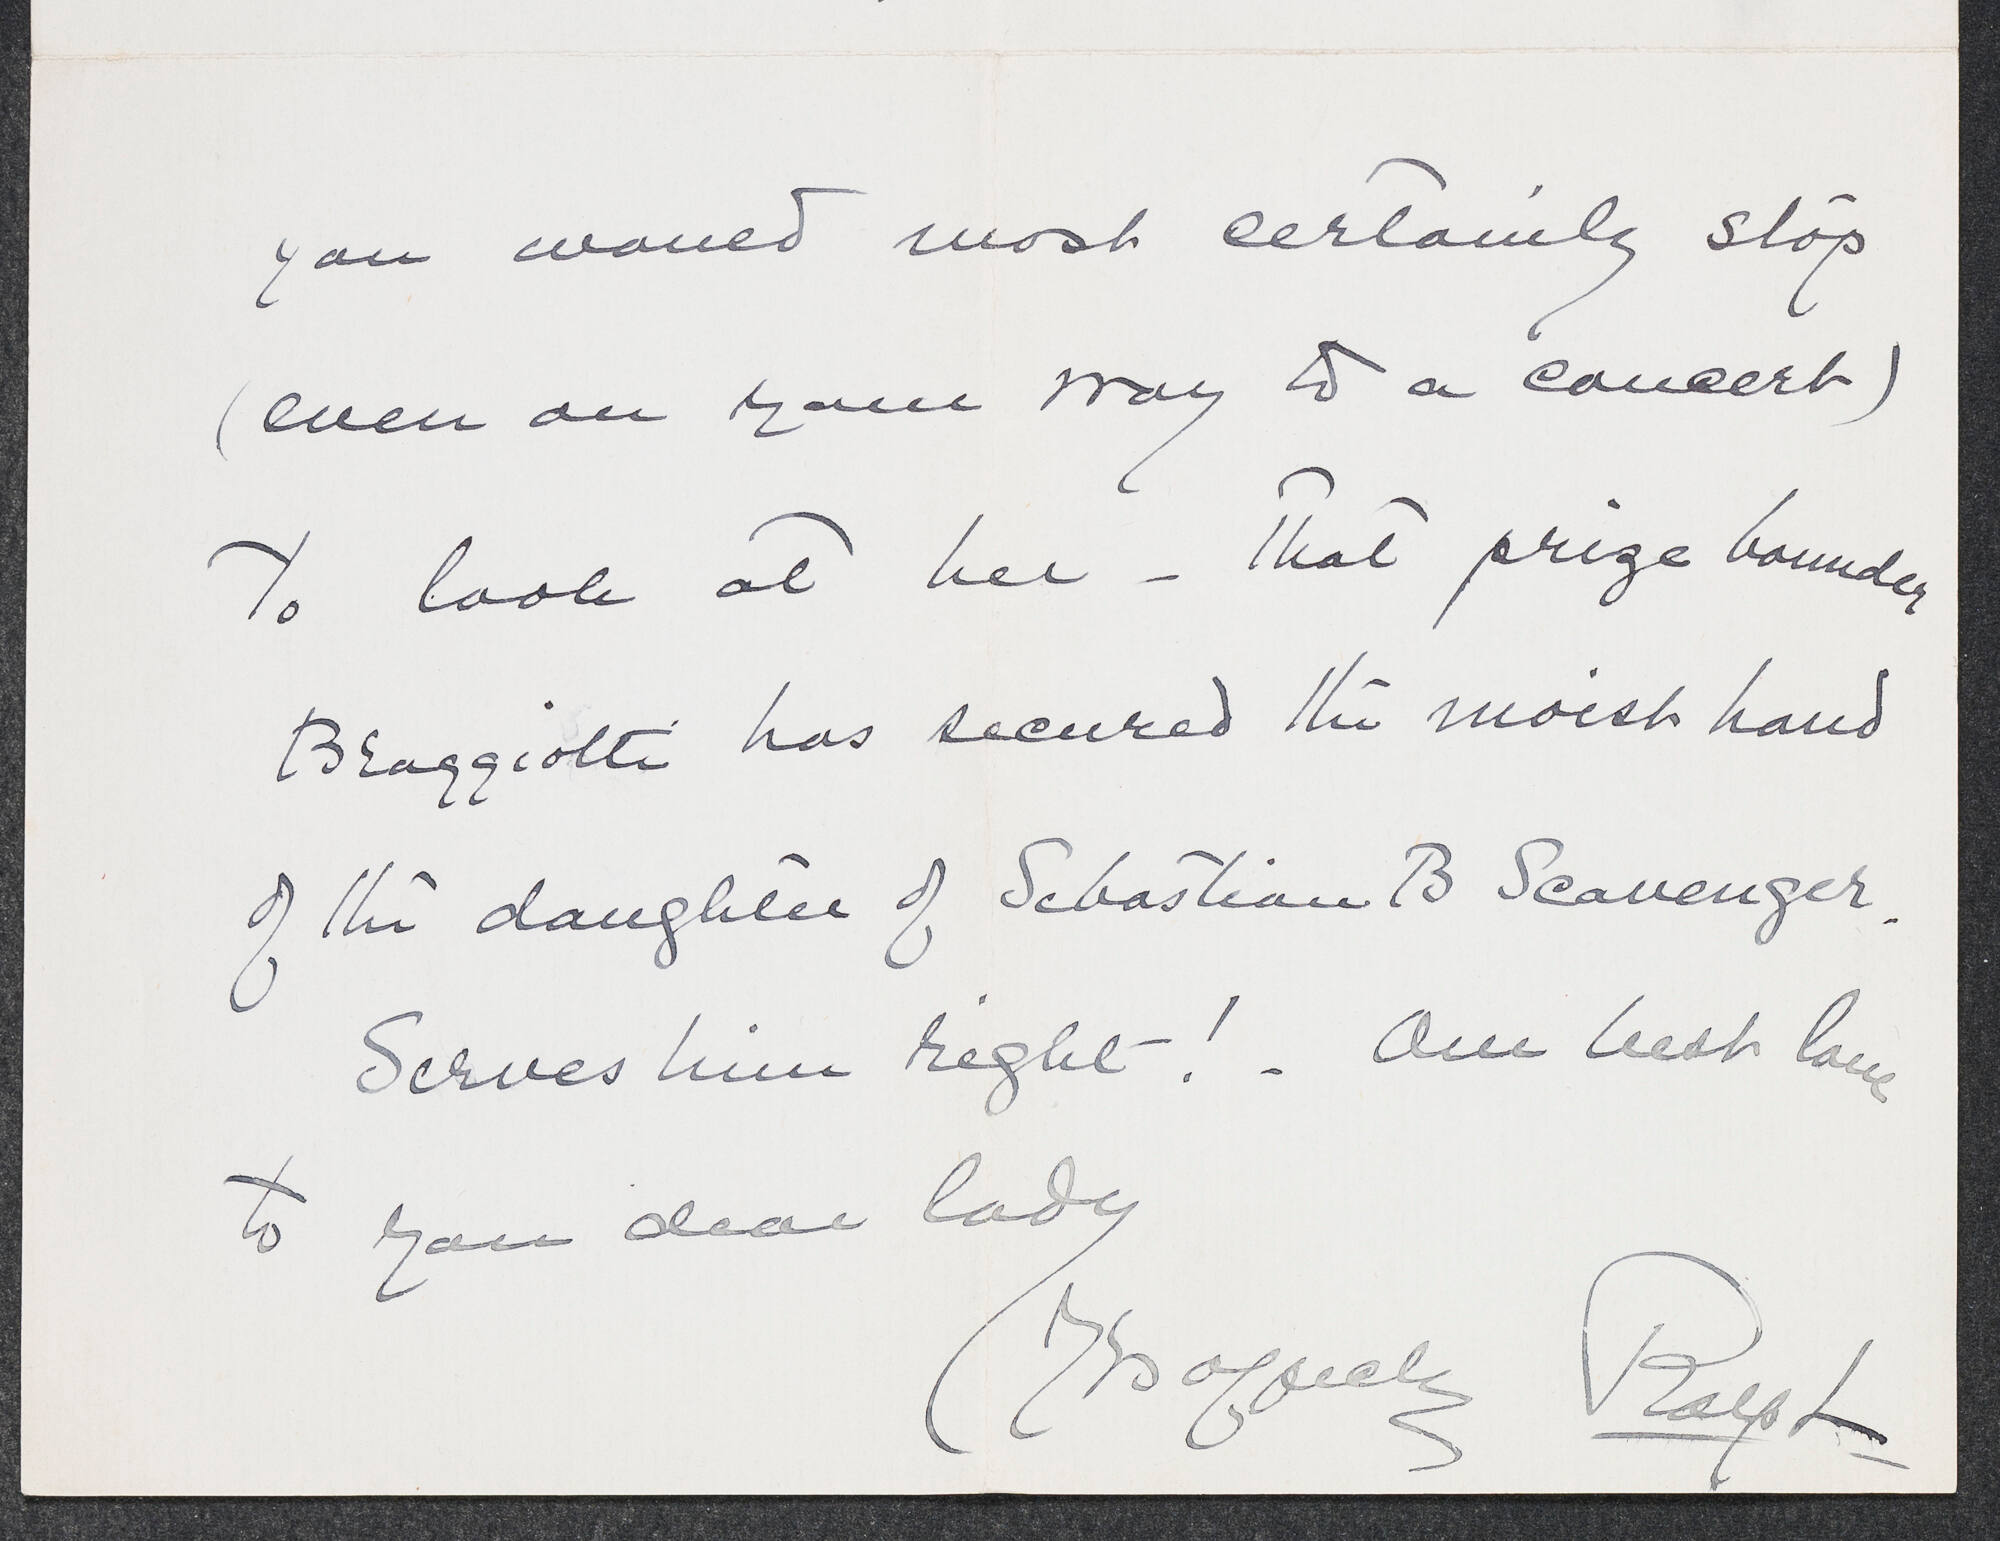 you would most certainly stop
(even on your way to a concert)
To look at her - That prize bounder
Braggiotti has secured the moist hand
of the daughter of Sebastian B Scavenger.
Serves him right! - Our best love
to you dear lady
Yrs affectly Ralph